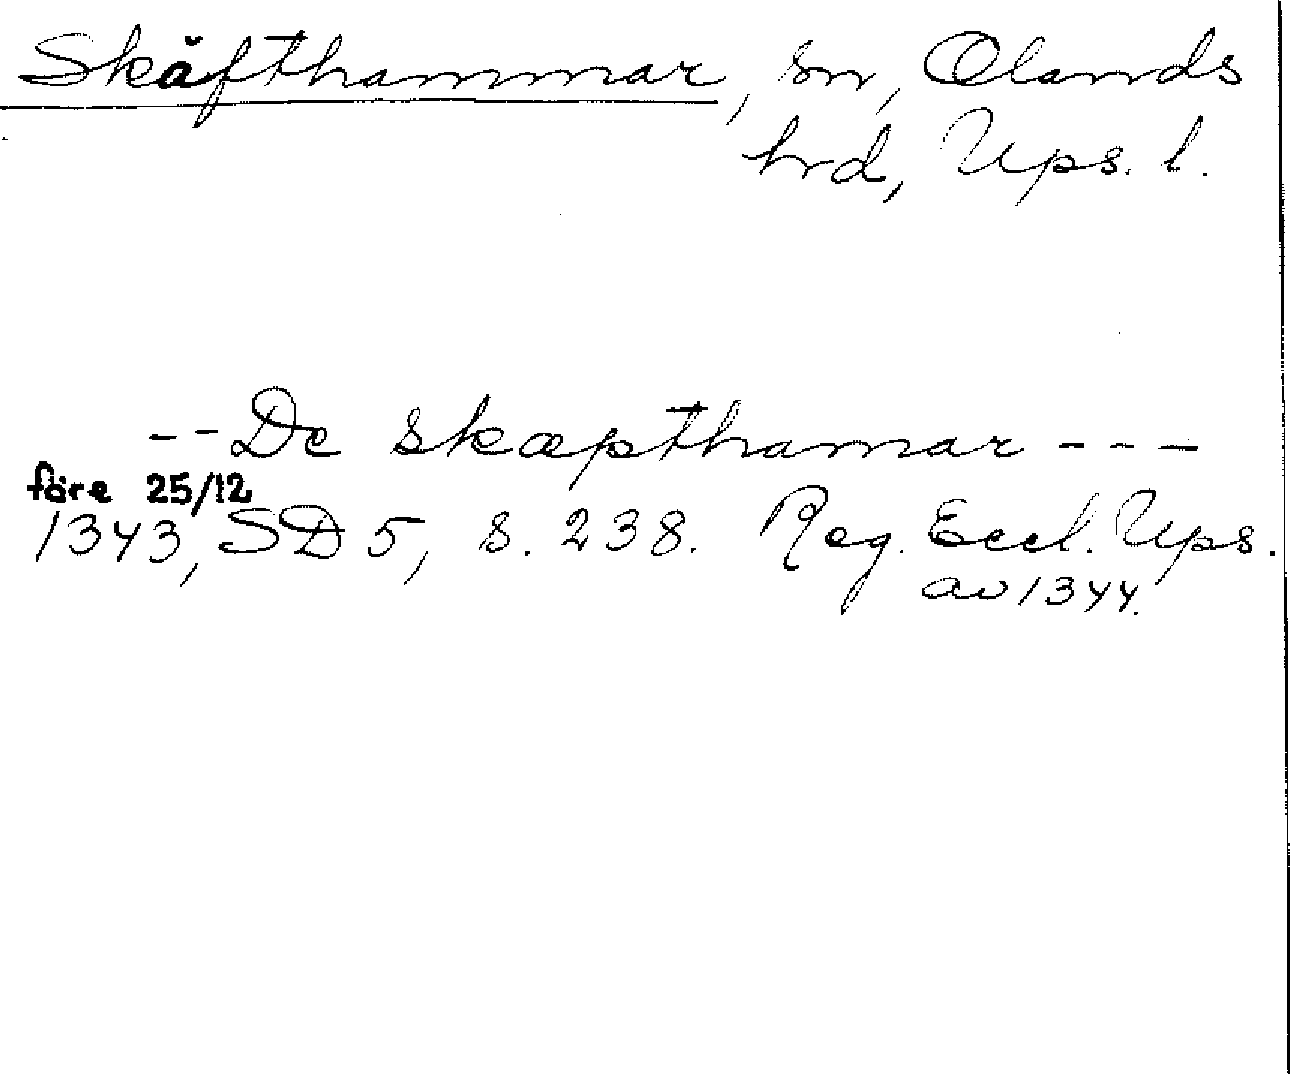 Skäfthammar, sn, Olands
hrd, Ups. l.
-- De skæpthamar ---
före 25/12
1343, SD 5, s. 238. Reg. Eccl. Ups.
av 1344.